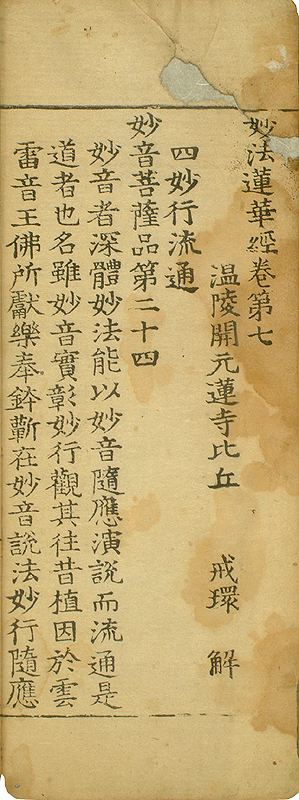 妙法蓮華經卷第七
溫陵開元蓮寺比丘 戒環 解
四妙行流通
妙音菩薩品第二十四
妙音者深體妙法能以妙音隨應演說而流通是
道者也名雖妙音實彰妙行觀其往昔植因於雲
雷音王佛所獻樂奉鉢蘄在妙音說法妙行隨應